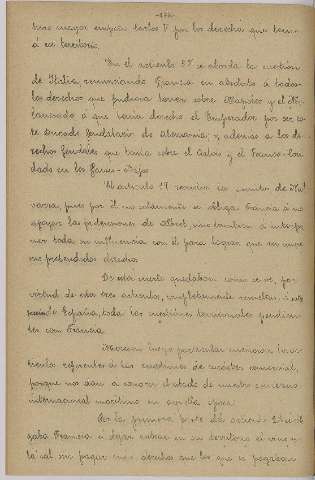 tuvo mayor empeño Carlos V por los derechos que tenia
á ese territorio.
En el artículo 5º se aborda la cuestion
de Italia, renunciando Francia en absoluto á todos
los derechos que pudiera tener sobre Nápoles y el Mi-
lanesado á que tenia derecho el Emperador por ser es-
te ducado feudatario de Alemania, y además á los de-
rechos feudales que tenia sobre el Artois y el Franco-Con-
dado en los Paises-Bajos
El artículo 19 resuelve la cuestion de Na-
varra, pues por él no solamente se obliga Francia á no
apoyar las pretensiones de Albret, sino tambien á interpo-
ner toda su influencia con él para lograr que renuncie
sus pretendidos derechos
De esta suerte quedaban como se ve, por
virtud de estos tres artículos, completamente resueltas á
de España, todas las cuestiones territoriales pendien-
tes con Francia.
luego particular mencion los ar-
tículos referentes á las cuestiones de carácter comercial,
porque nos dan á conocer el estado de nuestro comercio
internacional marítimo en aquella época.
Por la primera parte del artículo obli-
gaba Francia á dejar entrar en su territorio
sin pagar mas derechos que los que se pagaban